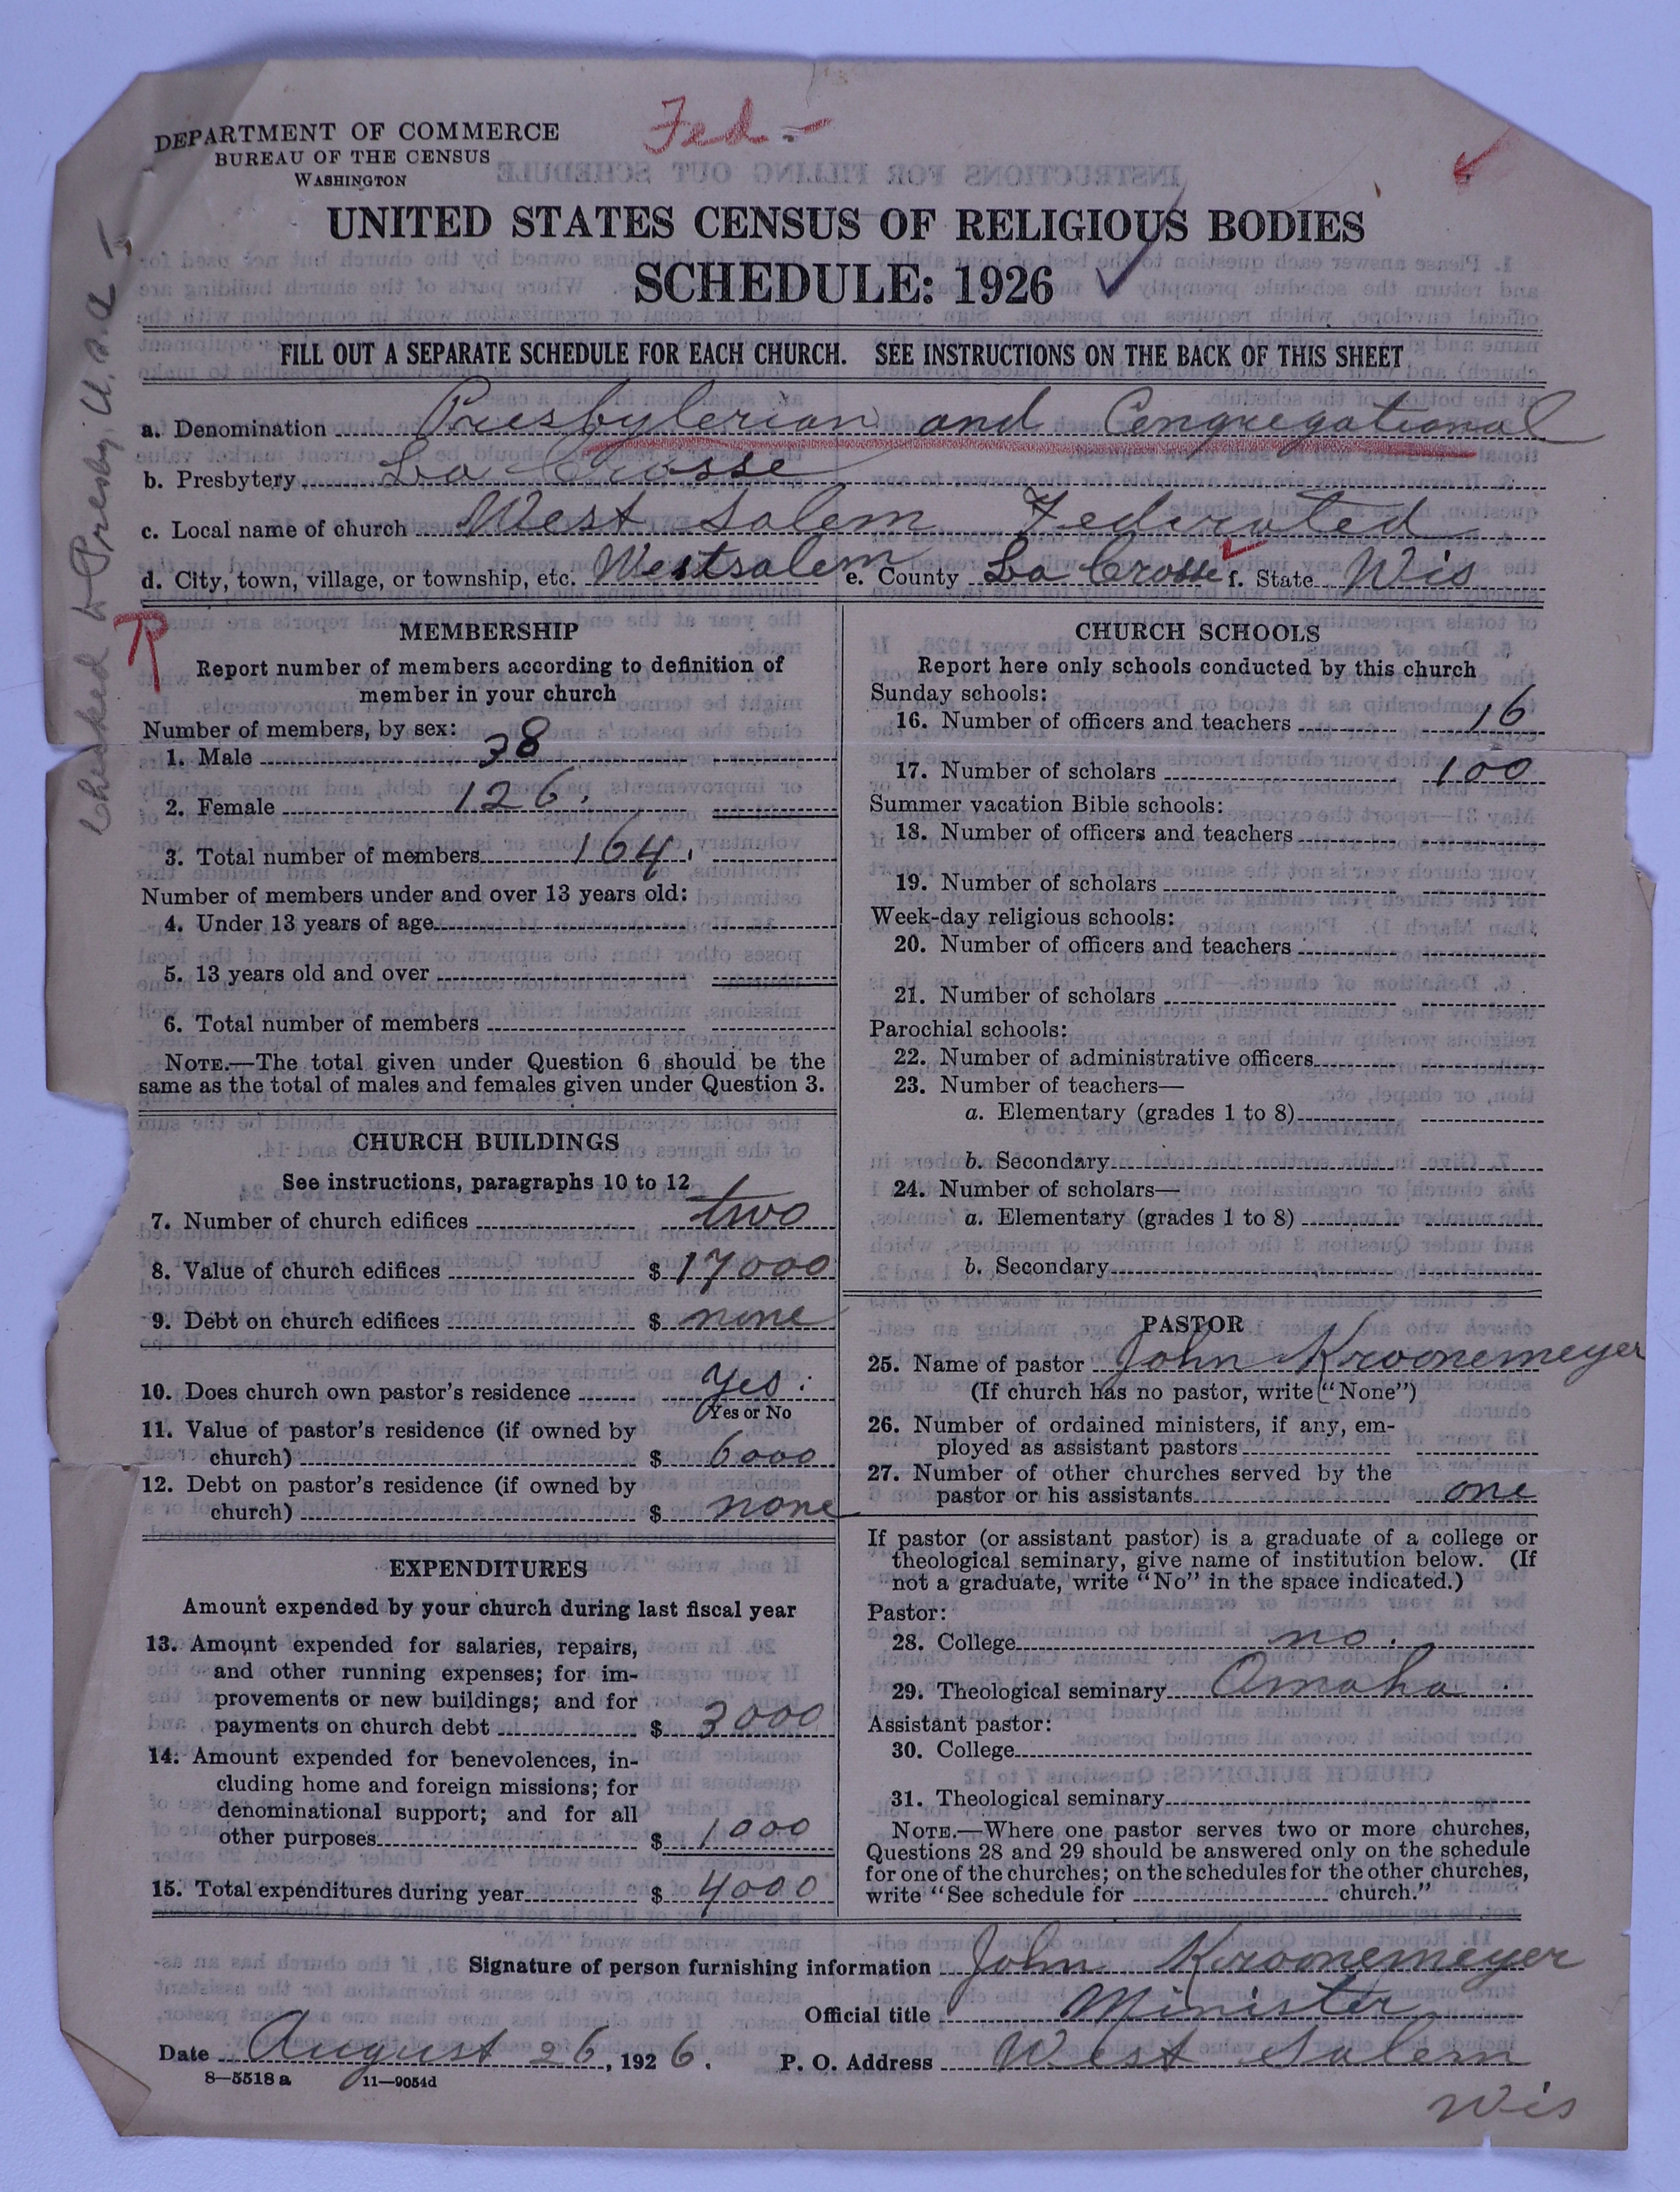 DEPARTMENT OF COMMERCE
BUREAU OF THE CENSUS
WASHINGTON
Fed.-
UNITED STATES CENSUS OF RELIGIOUS BODIES
SCHEDULE: 1926
FILL OUT A SEPARATE SCHEDULE FOR EACH CHURCH. SEE INSTRUCTIONS ON THE BACK OF THIS SHEET
Checked to Presby, U.S.A.
a. Denomination Presbyterian and Congregational
b. Presbytery La Crosse
c. Local name of church West Salem Federated
d. City, town, village, or township, etc. Westsalem e. County La Crosse f. State Wis
MEMBERSHIP
Report number of members according to definition of
member in your church
Number of members, by sex:
1. Male 38
2. Female 126.
3. Total number of members 164.
Number of members under and over 13 years old:
4. Under 13 years of age
5. 13 years old and over
6. Total number of members
NOTE.—The total given under Question 6 should be the
same as the total of males and females given under Question 3.
CHURCH BUILDINGS
See instructions, paragraphs 10 to 12
7. Number of church edifices two
8. Value of church edifices $ 17000
9. Debt on church edifices $ none
10. Does church own pastor's residence Yes.
Yes or No
11. Value of pastor's residence (if owned by
church) $ 6000
12. Debt on pastor's residence (if owned by
church) $ none
EXPENDITURES
Amount expended by your church during last fiscal year
13. Amount expended for salaries, repairs,
and other running expenses; for im-
provements or new buildings; and for
payments on church debt $ 3000
14. Amount expended for benevolences, in-
cluding home and foreign missions; for
denominational support; and for all
other purposes $ 1000
15. Total expenditures during year $ 4000
CHURCH SCHOOLS
Report here only schools conducted by this church
Sunday schools:
16. Number of officers and teachers 16
17. Number of scholars 100
Summer vacation Bible schools:
18. Number of officers and teachers
19. Number of scholars
Week-day religious schools:
20. Number of officers and teachers
21. Number of scholars
Parochial schools:
22. Number of administrative officers
23. Number of teachers—
a. Elementary (grades 1 to 8)
b. Secondary
24. Number of scholars—
a. Elementary (grades 1 to 8)
b. Secondary
PASTOR
25. Name of pastor John Kroonemeyer
(If church has no pastor, write "None")
26. Number of ordained ministers, if any, em-
ployed as assistant pastors
27. Number of other churches served by the
pastor or his assistants one
If pastor (or assistant pastor) is a graduate of a college or
theological seminary, give name of institution below. (If
not a graduate, write "No" in the space indicated.)
Pastor:
28. College no.
29. Theological seminary Omaha.
Assistant pastor:
30. College
31. Theological seminary
NOTE.—Where one pastor serves two or more churches,
Questions 28 and 29 should be answered only on the schedule
for one of the churches; on the schedules for the other churches,
write "See schedule for church."
Signature of person furnishing information John Kroonemeyer
Official title Minister
Date August 26, 1926. P. O. Address West Salem
Wis
8—5518 a 11—9054d